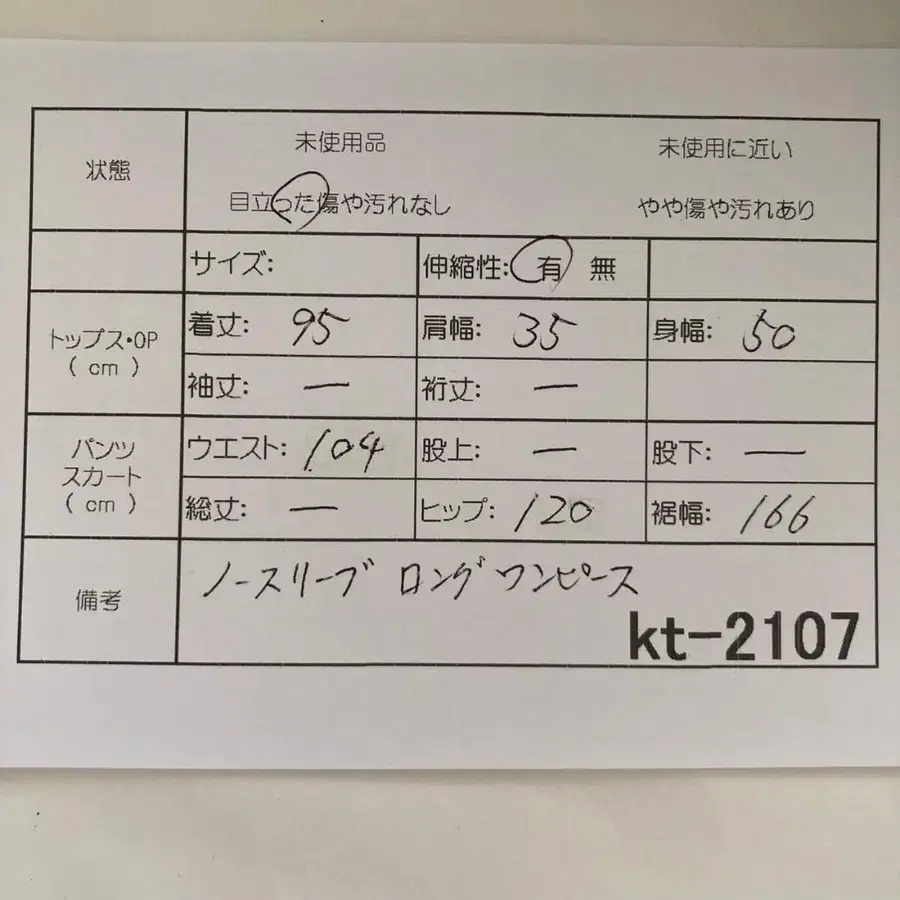 状態
未使用品 未使用に近い
目立った傷や汚れなし やや傷や汚れあり
サイズ: 伸縮性: 有 無
トップス・OP
( cm )
着丈: 95 肩幅: 35 身幅: 50
袖丈: ー 裄丈: ー
パンツ
スカート
( cm )
ウエスト: 104 股上: ー 股下: ー
総丈: ー ヒップ: 120 裾幅: 166
備考
ノースリーブ ロングワンピース
kt-2107